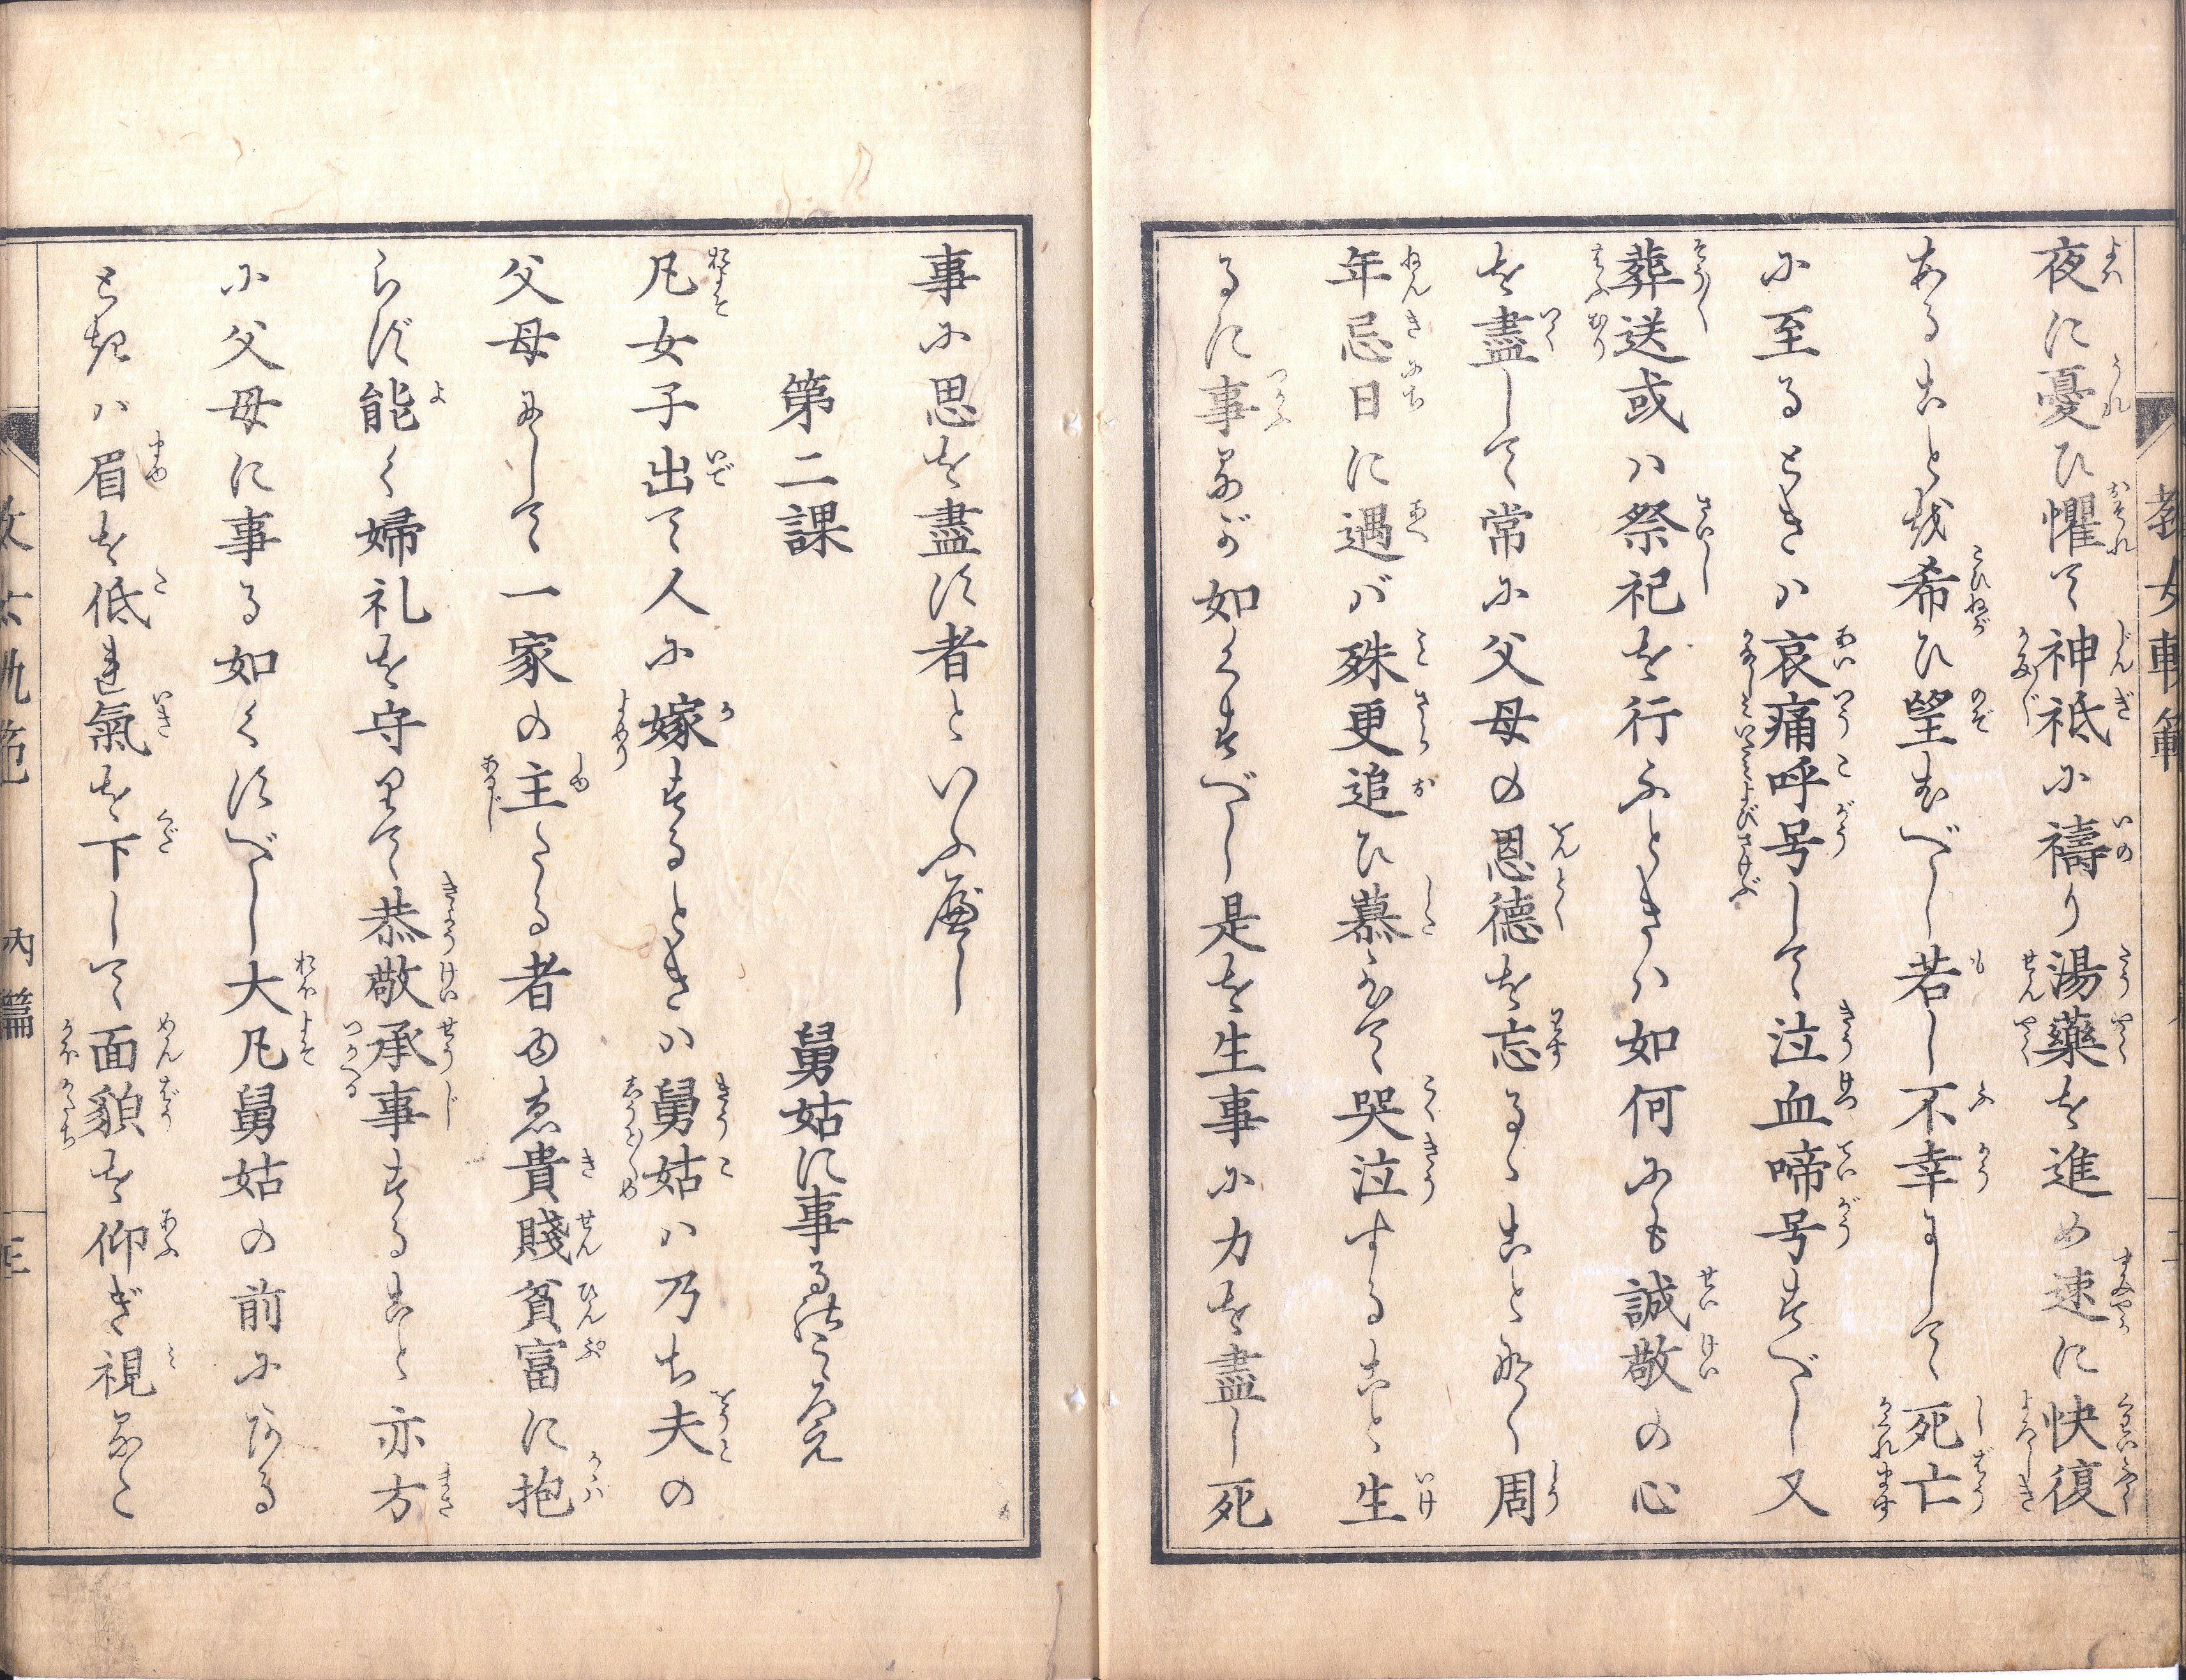 教女軌範
夜に憂ひ懼て神祗に禱り湯藥を進め速に快復
あることを希ひ望むべし若し不幸にして死亡
に至るときハ哀痛呼号して泣血啼号すべし又
葬送或ハ祭祀を行ふときハ如何にも誠敬の心
を盡して常に父母の恩德を忘るゝこと無く周
年忌日に遇バ殊更追ひ慕ふて哭泣すること生
るに事るが如くすべし是を生事に力を盡し死
事に思を盡す者といふ可し
第二課　舅姑に事る心え
凡女子出て人に嫁するときハ舅姑ハ乃ち夫の
父母にして一家の主たる者ゆゑ貴賤貧富に抱
らず能く婦礼を守りて恭敬承事すること亦方
に父母に事る如くすべし大凡舅姑の前に在る
ときハ眉を低れ氣を下して面貌を仰ぎ視るこ
教女軌範　内篇　三